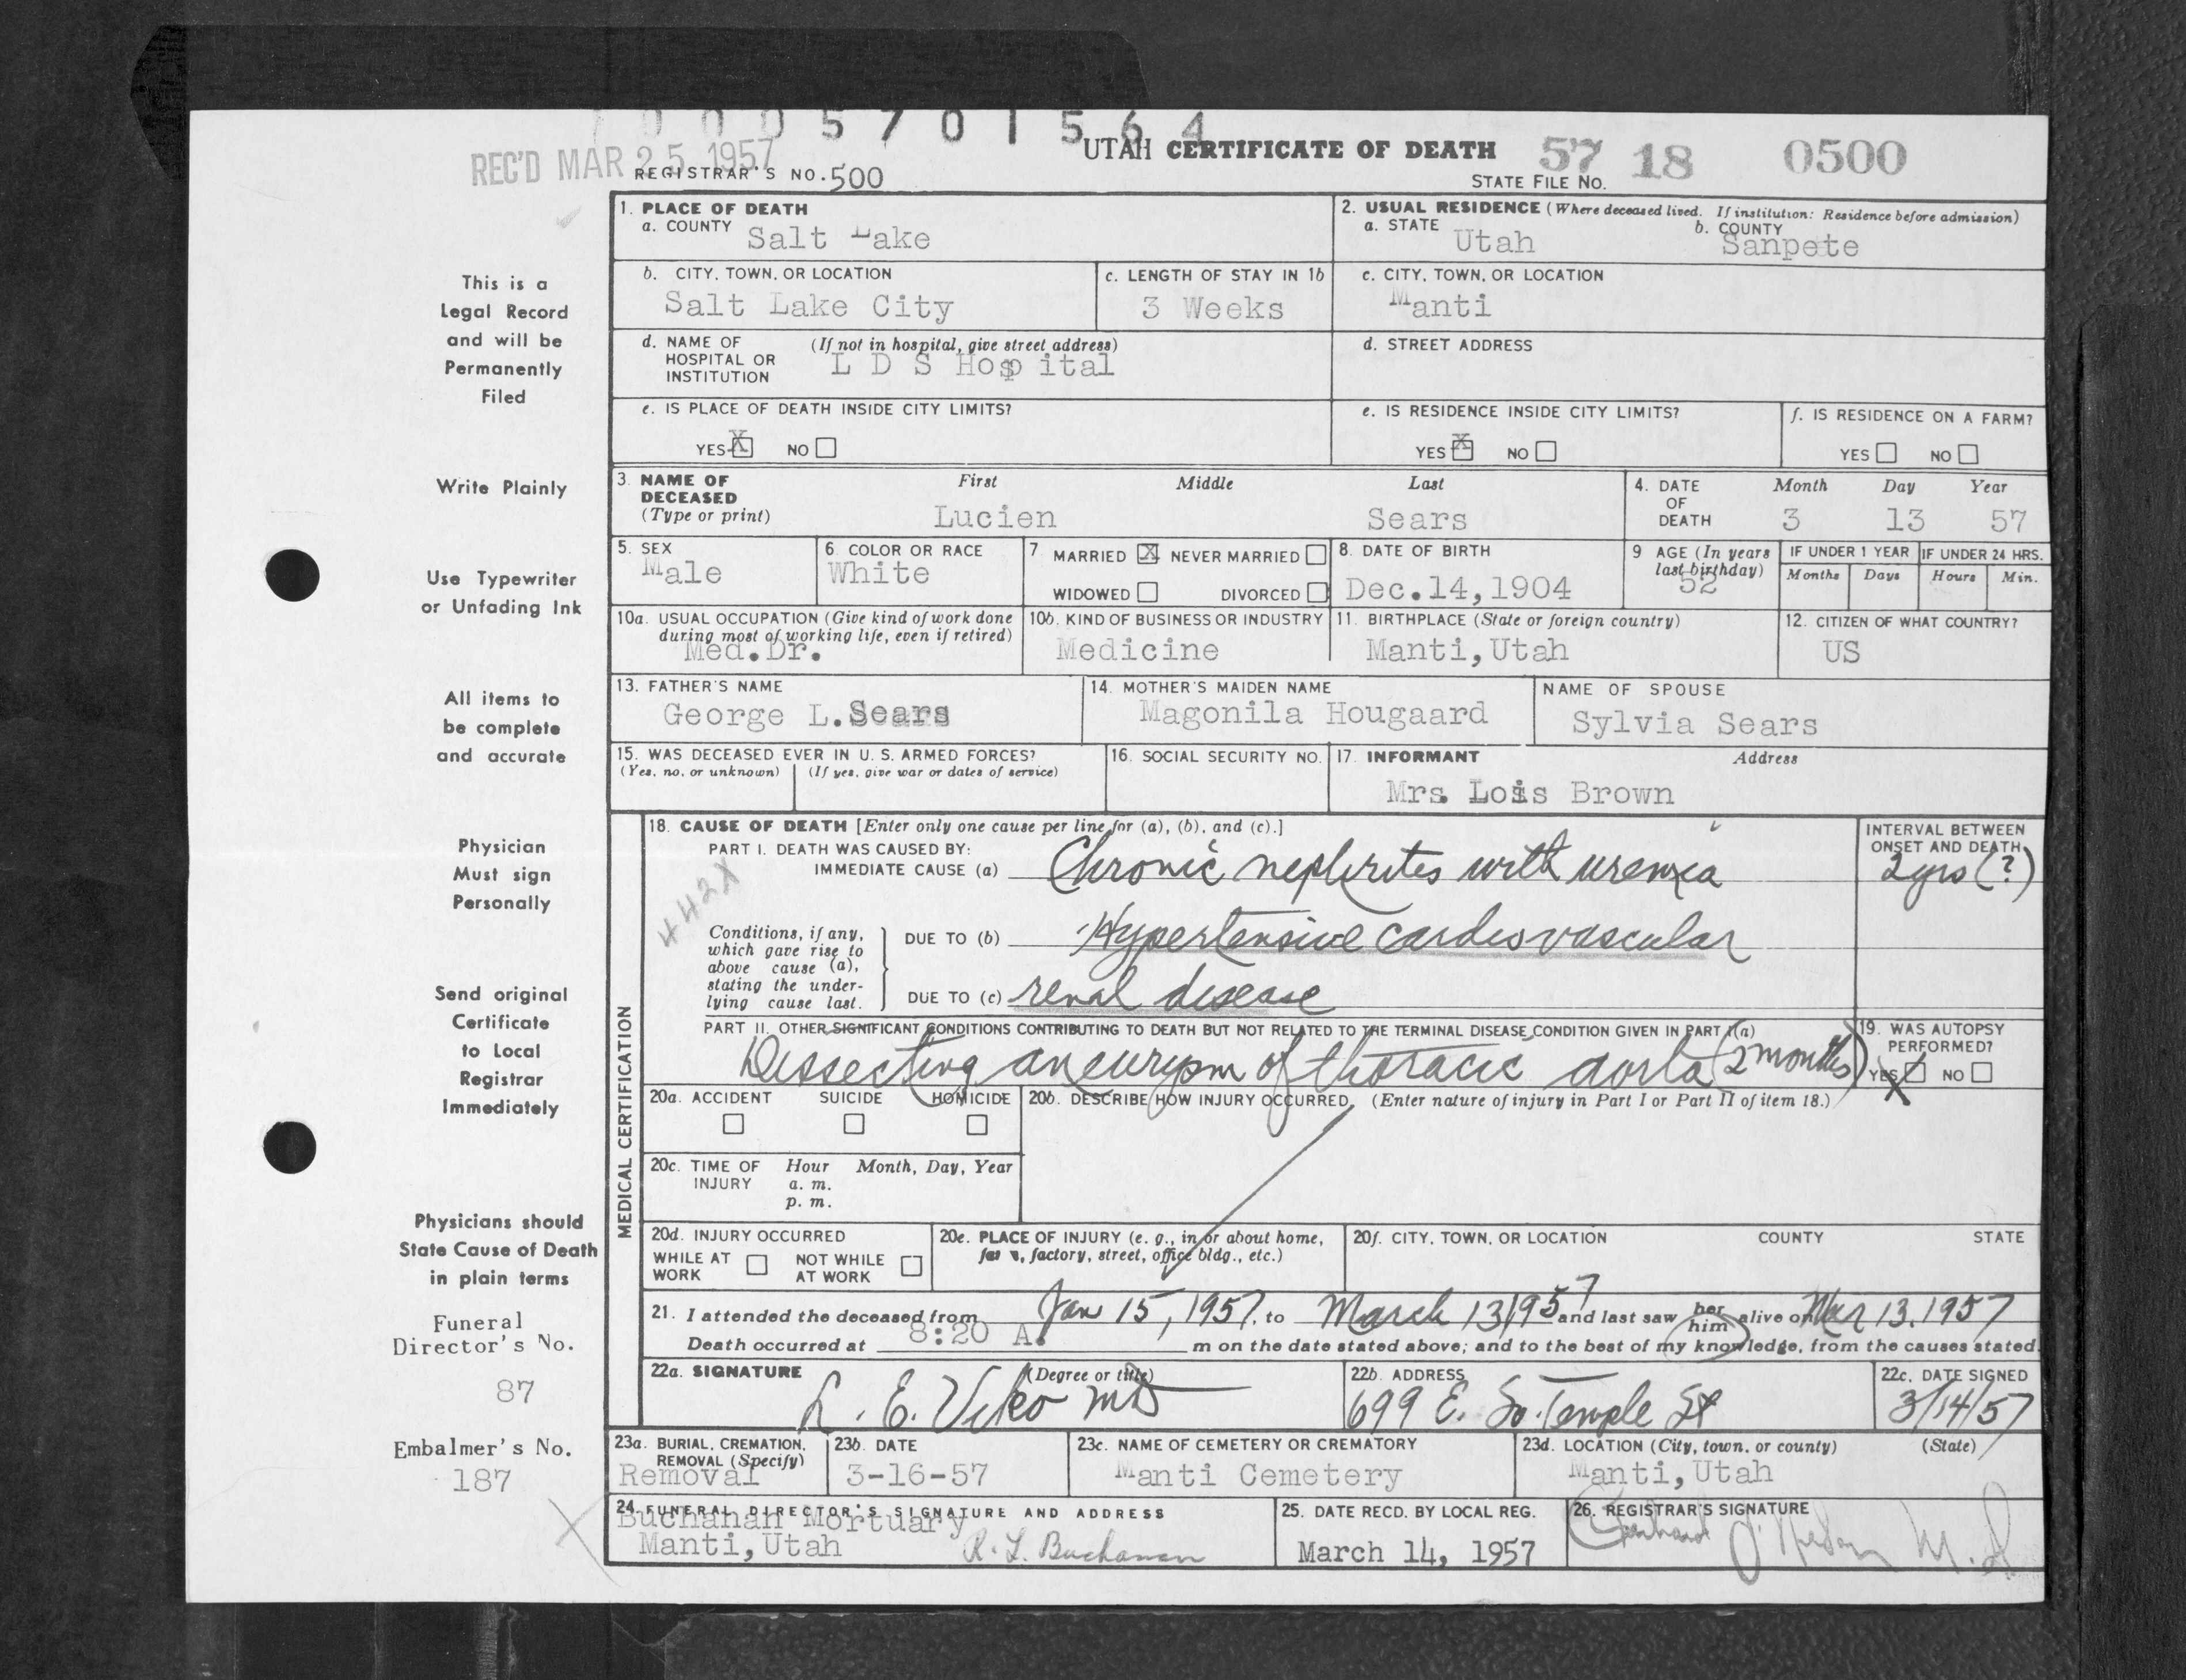 0005701564
REC'D MAR 25 1957
REGISTRAR'S NO. 500
UTAH CERTIFICATE OF DEATH
STATE FILE NO. 57 18 0500
This is a
Legal Record
and will be
Permanently
Filed
Write Plainly
Use Typewriter
or Unfading Ink
All items to
be complete
and accurate
Physician
Must sign
Personally
Send original
Certificate
to Local
Registrar
Immediately
Physicians should
State Cause of Death
in plain terms
Funeral
Director's No.
87
Embalmer's No.
187
1. PLACE OF DEATH
a. COUNTY Salt Lake
2. USUAL RESIDENCE (Where deceased lived. If institution: Residence before admission)
a. STATE Utah b. COUNTY Sanpete
b. CITY, TOWN, OR LOCATION
Salt Lake City
c. LENGTH OF STAY IN 1b
3 Weeks
c. CITY, TOWN, OR LOCATION
Manti
d. NAME OF HOSPITAL OR INSTITUTION (If not in hospital, give street address)
L D S Hosp ital
d. STREET ADDRESS
e. IS PLACE OF DEATH INSIDE CITY LIMITS?
YES X NO
e. IS RESIDENCE INSIDE CITY LIMITS?
YES X NO
f. IS RESIDENCE ON A FARM?
YES NO
3. NAME OF DECEASED (Type or print) First Middle Last
Lucien Sears
4. DATE OF DEATH Month Day Year
3 13 57
5. SEX
Male
6. COLOR OR RACE
White
7 MARRIED X NEVER MARRIED
WIDOWED DIVORCED
8. DATE OF BIRTH
Dec.14,1904
9 AGE (In years last birthday)
52
IF UNDER 1 YEAR
Months Days
IF UNDER 24 HRS.
Hours Min.
10a. USUAL OCCUPATION (Give kind of work done during most of working life, even if retired)
Med.Dr.
10b. KIND OF BUSINESS OR INDUSTRY
Medicine
11. BIRTHPLACE (State or foreign country)
Manti,Utah
12. CITIZEN OF WHAT COUNTRY?
US
13. FATHER'S NAME
George L.Sears
14. MOTHER'S MAIDEN NAME
Magonila Hougaard
NAME OF SPOUSE
Sylvia Sears
15. WAS DECEASED EVER IN U. S. ARMED FORCES?
(Yes, no, or unknown) (If yes, give war or dates of service)
16. SOCIAL SECURITY NO.
17. INFORMANT Address
Mrs. Lois Brown
MEDICAL CERTIFICATION
18. CAUSE OF DEATH [Enter only one cause per line for (a), (b), and (c).]
PART I. DEATH WAS CAUSED BY:
IMMEDIATE CAUSE (a) Chronic nephrites with uremia
INTERVAL BETWEEN ONSET AND DEATH
2 yrs (?)
442X
Conditions, if any, which gave rise to above cause (a), stating the underlying cause last.
DUE TO (b) Hypertensive cardiovascular
DUE TO (c) renal disease
PART II. OTHER SIGNIFICANT CONDITIONS CONTRIBUTING TO DEATH BUT NOT RELATED TO THE TERMINAL DISEASE CONDITION GIVEN IN PART I(a)
Dissecting aneurysm of thoracic aorta (2 months)
19. WAS AUTOPSY PERFORMED?
YES X NO
20a. ACCIDENT SUICIDE HOMICIDE
20b. DESCRIBE HOW INJURY OCCURRED. (Enter nature of injury in Part I or Part II of item 18.)
20c. TIME OF INJURY Hour Month, Day, Year
a. m.
p. m.
20d. INJURY OCCURRED
WHILE AT WORK NOT WHILE AT WORK
20e. PLACE OF INJURY (e. g., in or about home, farm, factory, street, office bldg., etc.)
20f. CITY, TOWN, OR LOCATION COUNTY STATE
21. I attended the deceased from Jan 15, 1957, to March 13 1957 and last saw her him alive on Mar 13, 1957
Death occurred at 8:20 A. m on the date stated above; and to the best of my knowledge, from the causes stated.
22a. SIGNATURE (Degree or title)
L. E. Viko MD
22b. ADDRESS
699 E. So. Temple St
22c. DATE SIGNED
3/14/57
23a. BURIAL, CREMATION, REMOVAL (Specify)
Removal
23b. DATE
3-16-57
23c. NAME OF CEMETERY OR CREMATORY
Manti Cemetery
23d. LOCATION (City, town, or county) (State)
Manti,Utah
24. FUNERAL DIRECTOR'S SIGNATURE AND ADDRESS
Buchanan Mortuary
Manti,Utah R. L. Buchanan
25. DATE RECD. BY LOCAL REG.
March 14, 1957
26. REGISTRAR'S SIGNATURE
M.D